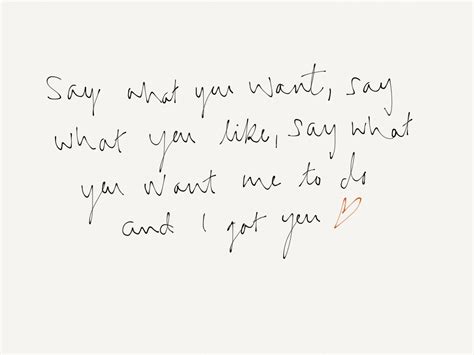 Say what you want, say
what you like, say what
you want me to do
and I got you